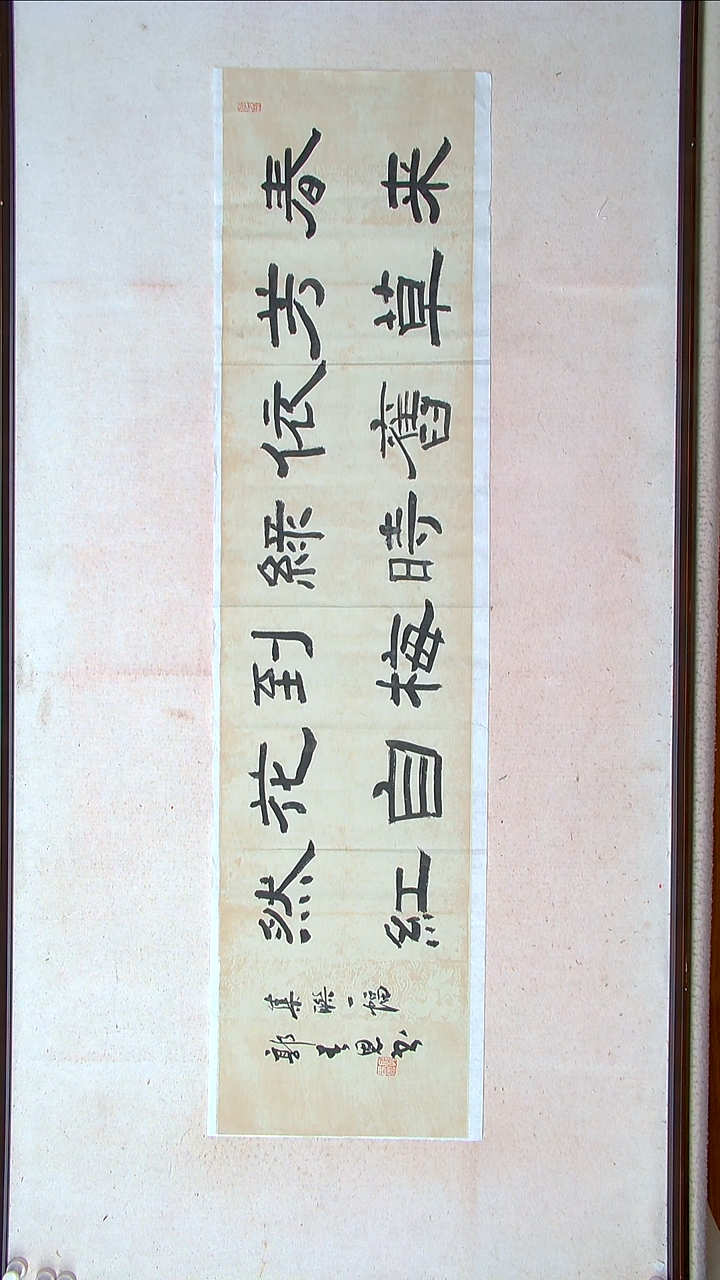 春来
芳草
依舊
綠時
到梅
花自
然紅
集聯一幅
郭